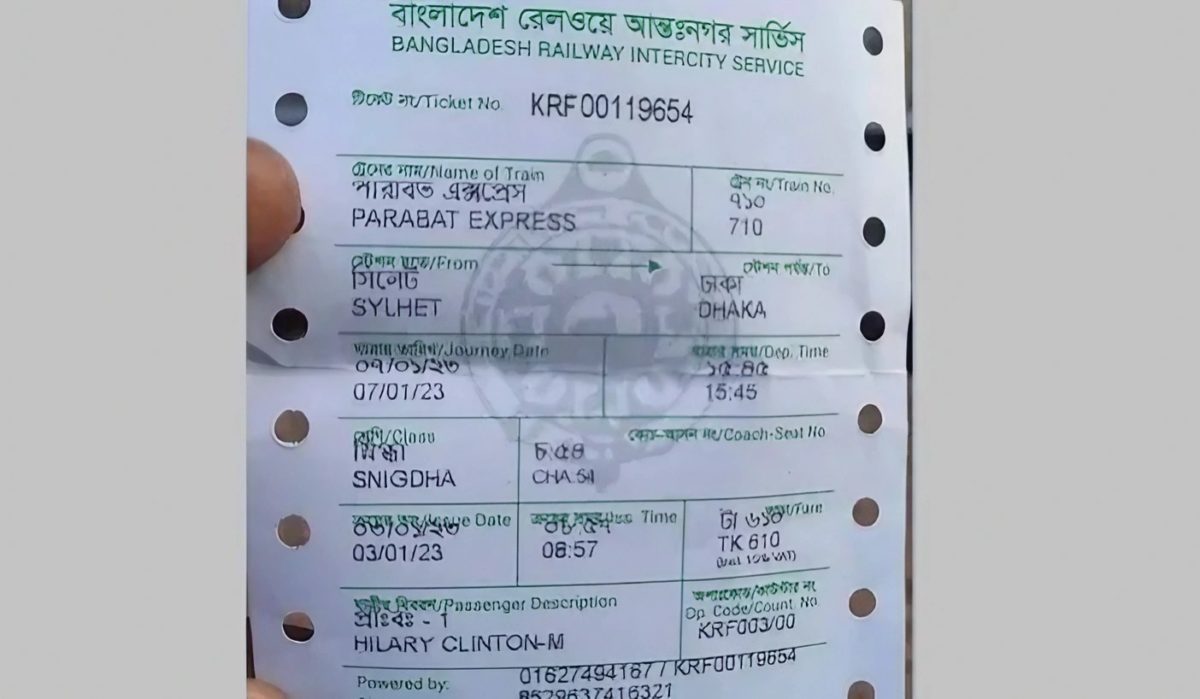 বাংলাদেশ রেলওয়ে আন্তঃনগর সার্ভিস
BANGLADESH RAILWAY INTERCITY SERVICE
টিকেট নং/Ticket No. KRF00119654
ট্রেনের নাম/Name of Train ট্রেন নং/Train No.
পারাবত এক্সপ্রেস ৭১০
PARABAT EXPRESS 710
স্টেশন হতে/From স্টেশন পর্যন্ত/To
সিলেট ঢাকা
SYLHET DHAKA
/Journey Date /Dep. Time
০৭/০১/২৩ ১৫:৪৫
07/01/23 15:45
শ্রেণি/Class /Coach-Seat No
স্নিগ্ধা
SNIGDHA CHA
/Issue Date Time
০৩/০১/২৩ টা ৬১০
03/01/23 08:57 TK 610
/Passenger Description
Op. Code/Count. No.
HILARY CLINTON-M KRF003/00
Powered by: 01627494167 / KRF00119654
8529637416321